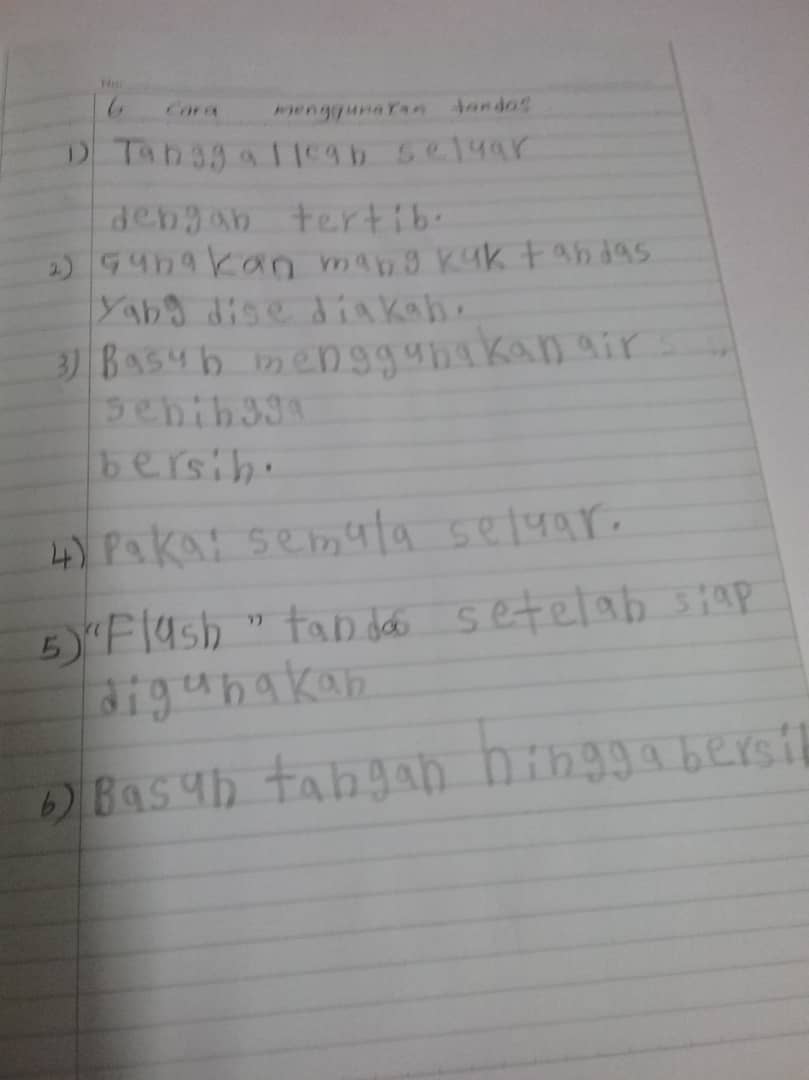 No:
6 cara menggunakan tandas
1) Tanggalkan seluar
dengan tertib.
2) Gunakan mangkuk tandas
yang disediakan.
3) Basuh menggunakan air
sehingga
bersih.
4) Pakai semula seluar.
5) "Flush" tandas setelah siap
digunakan
6) Basuh tangan hingga bersih